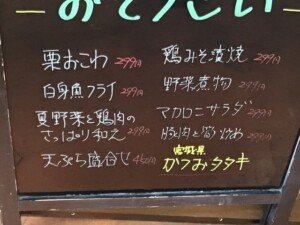 おそうざい
栗おこわ 299円
白身魚フライ 299円
夏野菜と鶏肉の
さっぱり和え 299円
天ぷら盛合せ
鶏みそ漬焼 299円
野菜煮物 299円
マカロニサラダ 299円
豚肉と筍炒め 299円
宮城県
かつおタタキ